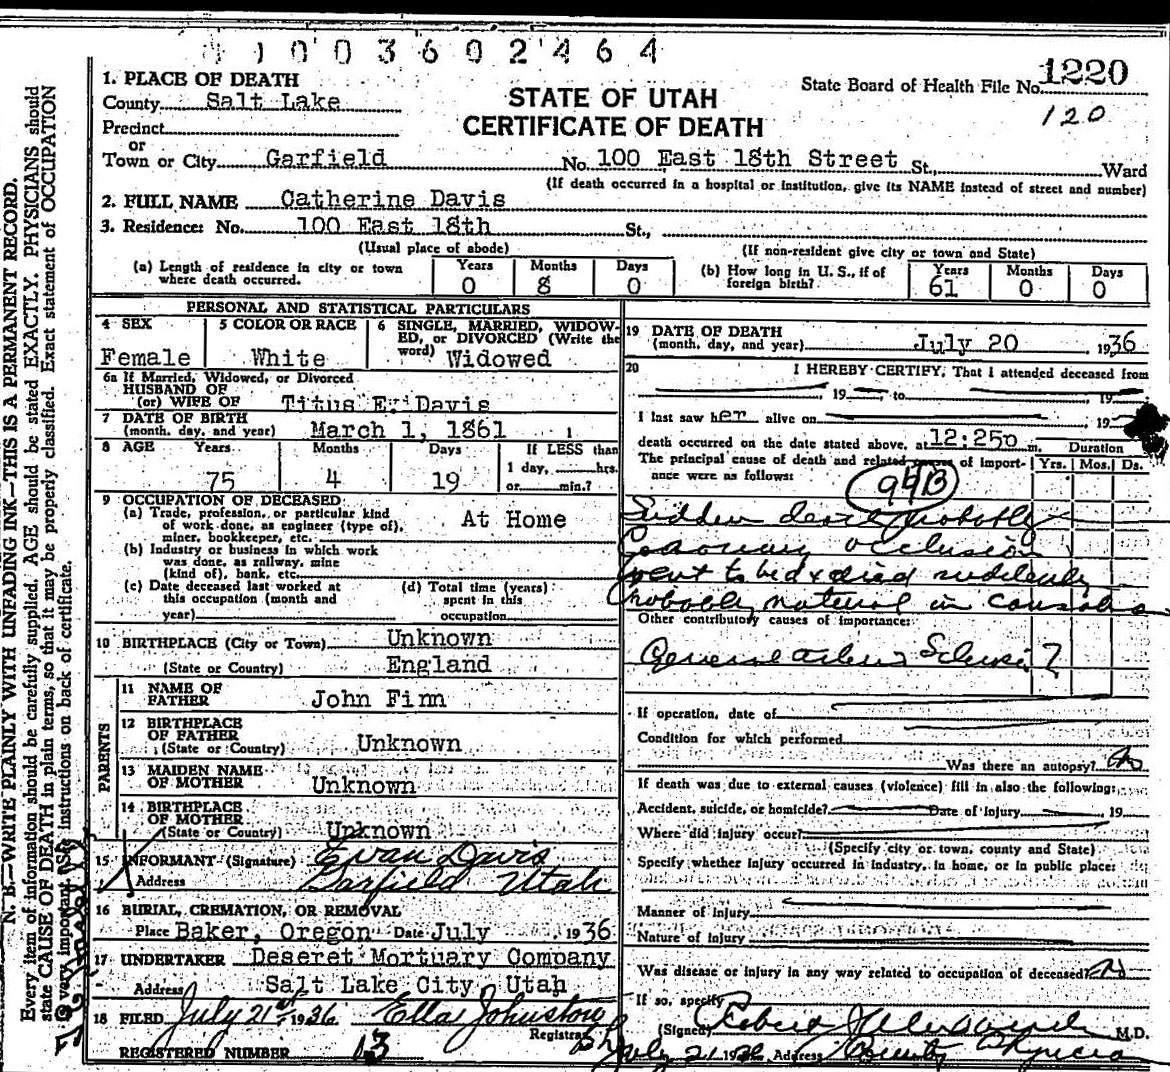 1003602464
1. PLACE OF DEATH
County Salt Lake
Precinct
or
Town or City Garfield
STATE OF UTAH
CERTIFICATE OF DEATH
State Board of Health File No. 1220
120
No. 100 East 18th Street St., Ward
(If death occurred in a hospital or institution, give its NAME instead of street and number)
2. FULL NAME Catherine Davis
3. Residence: No. 100 East 18th St.,
(Usual place of abode) (If non-resident give city or town and State)
(a) Length of residence in city or town where death occurred. Years 0 Months 8 Days 0
(b) How long in U. S., if of foreign birth? Years 61 Months 0 Days 0
PERSONAL AND STATISTICAL PARTICULARS
4 SEX Female
5 COLOR OR RACE White
6 SINGLE, MARRIED, WIDOW-
ED, or DIVORCED (Write the
word) Widowed
6a If Married, Widowed, or Divorced
HUSBAND OF
(or) WIFE OF Titus E. Davis
7 DATE OF BIRTH
(month, day, and year) March 1, 1861
8 AGE Years 75 Months 4 Days 19
If LESS than
1 day, hrs.
or min.?
9 OCCUPATION OF DECEASED:
(a) Trade, profession, or particular kind
of work done, as engineer (type of),
miner, bookkeeper, etc. At Home
(b) Industry or business in which work
was done, as railway, mine
(kind of), bank, etc.
(c) Date deceased last worked at
this occupation (month and
year)
(d) Total time (years)
spent in this
occupation
10 BIRTHPLACE (City or Town) Unknown
(State or Country) England
PARENTS
11 NAME OF
FATHER John Finn
12 BIRTHPLACE
OF FATHER
(State or Country) Unknown
13 MAIDEN NAME
OF MOTHER Unknown
14 BIRTHPLACE
OF MOTHER
(State or Country) Unknown
15 INFORMANT (Signature) Evan Davis
Address Garfield Utah
16 BURIAL, CREMATION, OR REMOVAL
Place Baker, Oregon Date July 1936
17 UNDERTAKER Deseret Mortuary Company
Address Salt Lake City, Utah
18 FILED July 21st 1936 Ella Johnston
Registrar
REGISTERED NUMBER 13
19 DATE OF DEATH
(month, day, and year) July 20, 1936
20 I HEREBY CERTIFY, That I attended deceased from
, 19 to , 19
I last saw her alive on , 19
death occurred on the date stated above, at 12:25p m.
The principal cause of death and related causes of import-
ance were as follows:
Duration
Yrs. Mos. Ds.
94B
Sudden death probably
Coronary occlusion
went to bed & died suddenly
Probably natural in
Other contributory causes of importance:
General Sclerosis ?
If operation, date of
Condition for which performed
Was there an autopsy? No
If death was due to external causes (violence) fill in also the following:
Accident, suicide, or homicide? Date of Injury , 19
Where did injury occur?
(Specify city or town, county and State)
Specify whether injury occurred in industry, in home, or in public place:
Manner of Injury
Nature of Injury
Was disease or injury in any way related to occupation of deceased? No
If so, specify
(Signed) M.D.
July 21 1936 Address County Physician
N. B.—WRITE PLAINLY WITH UNFADING INK—THIS IS A PERMANENT RECORD.
Every item of information should be carefully supplied. AGE should be stated EXACTLY. PHYSICIANS should
state CAUSE OF DEATH in plain terms, so that it may be properly classified. Exact statement of OCCUPATION
is very important. See instructions on back of certificate.